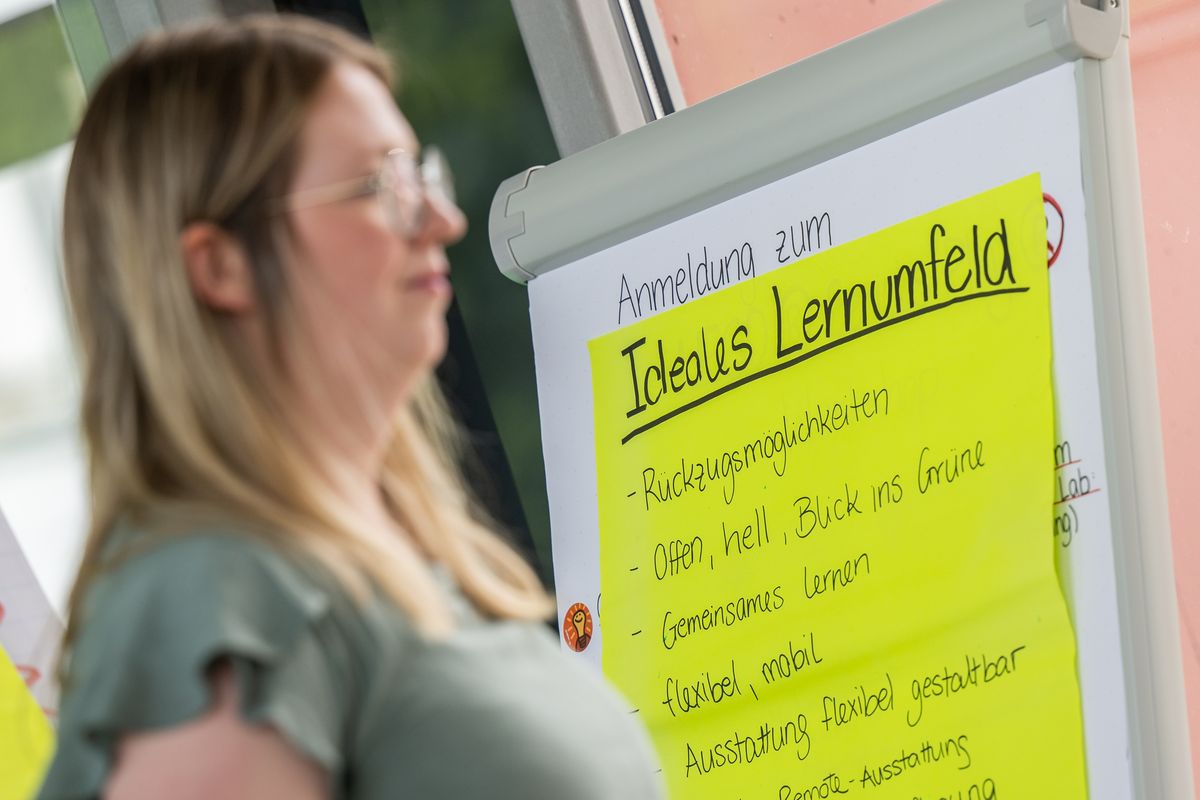 Anmeldung zum
Ideales Lernumfeld
- Rückzugsmöglichkeiten
- Offen, hell, Blick ins Grüne
- Gemeinsames lernen
- flexibel, mobil
- Ausstattung flexibel gestaltbar
Remote-Ausstattung
m
Lab.
ng)